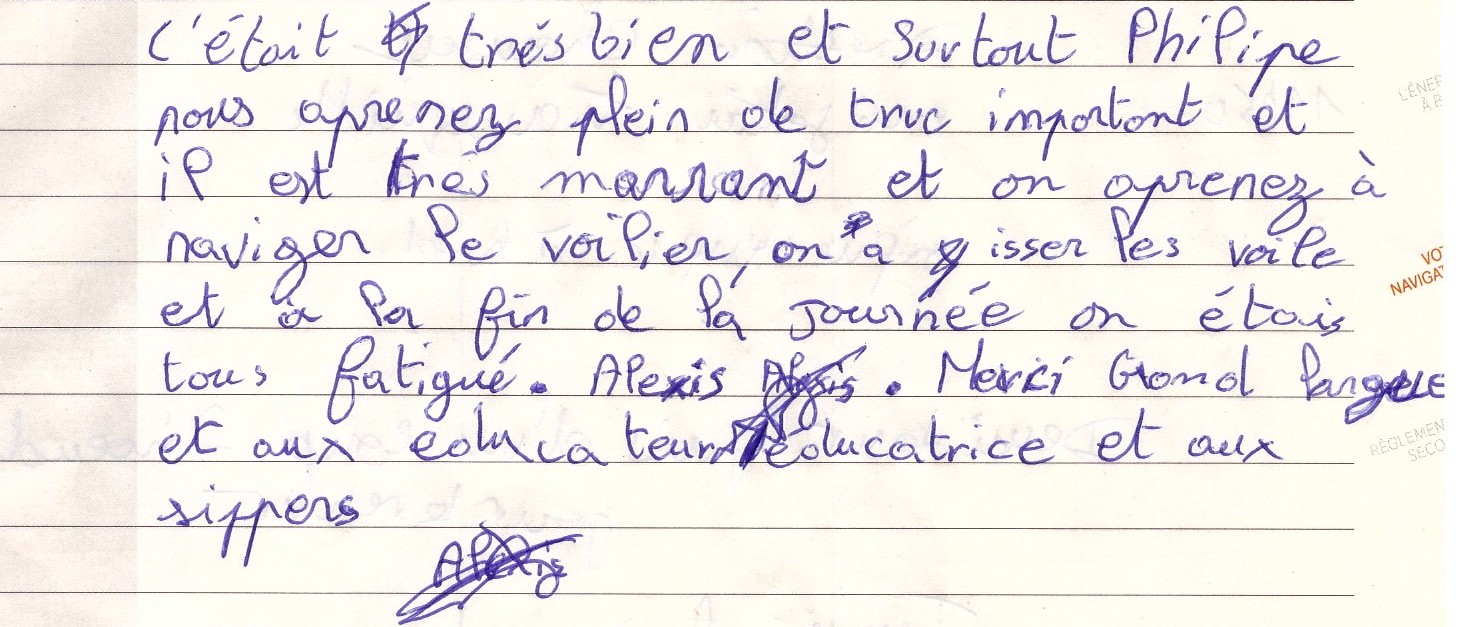 C'était très bien et surtout Philipe
nous aprenez plein de truc important et
il est très marrant et on aprenez à
naviger le voilier, on a isser les voile
et à la fin de la journée on étais
tous fatigué. Alexis Alexis. Merci Grand Largue
et aux educateur éducatrice et aux
sippers
Alexis
L'ÉNER
À B
VO
NAVIGAT
RÈGLEMEN
SECO